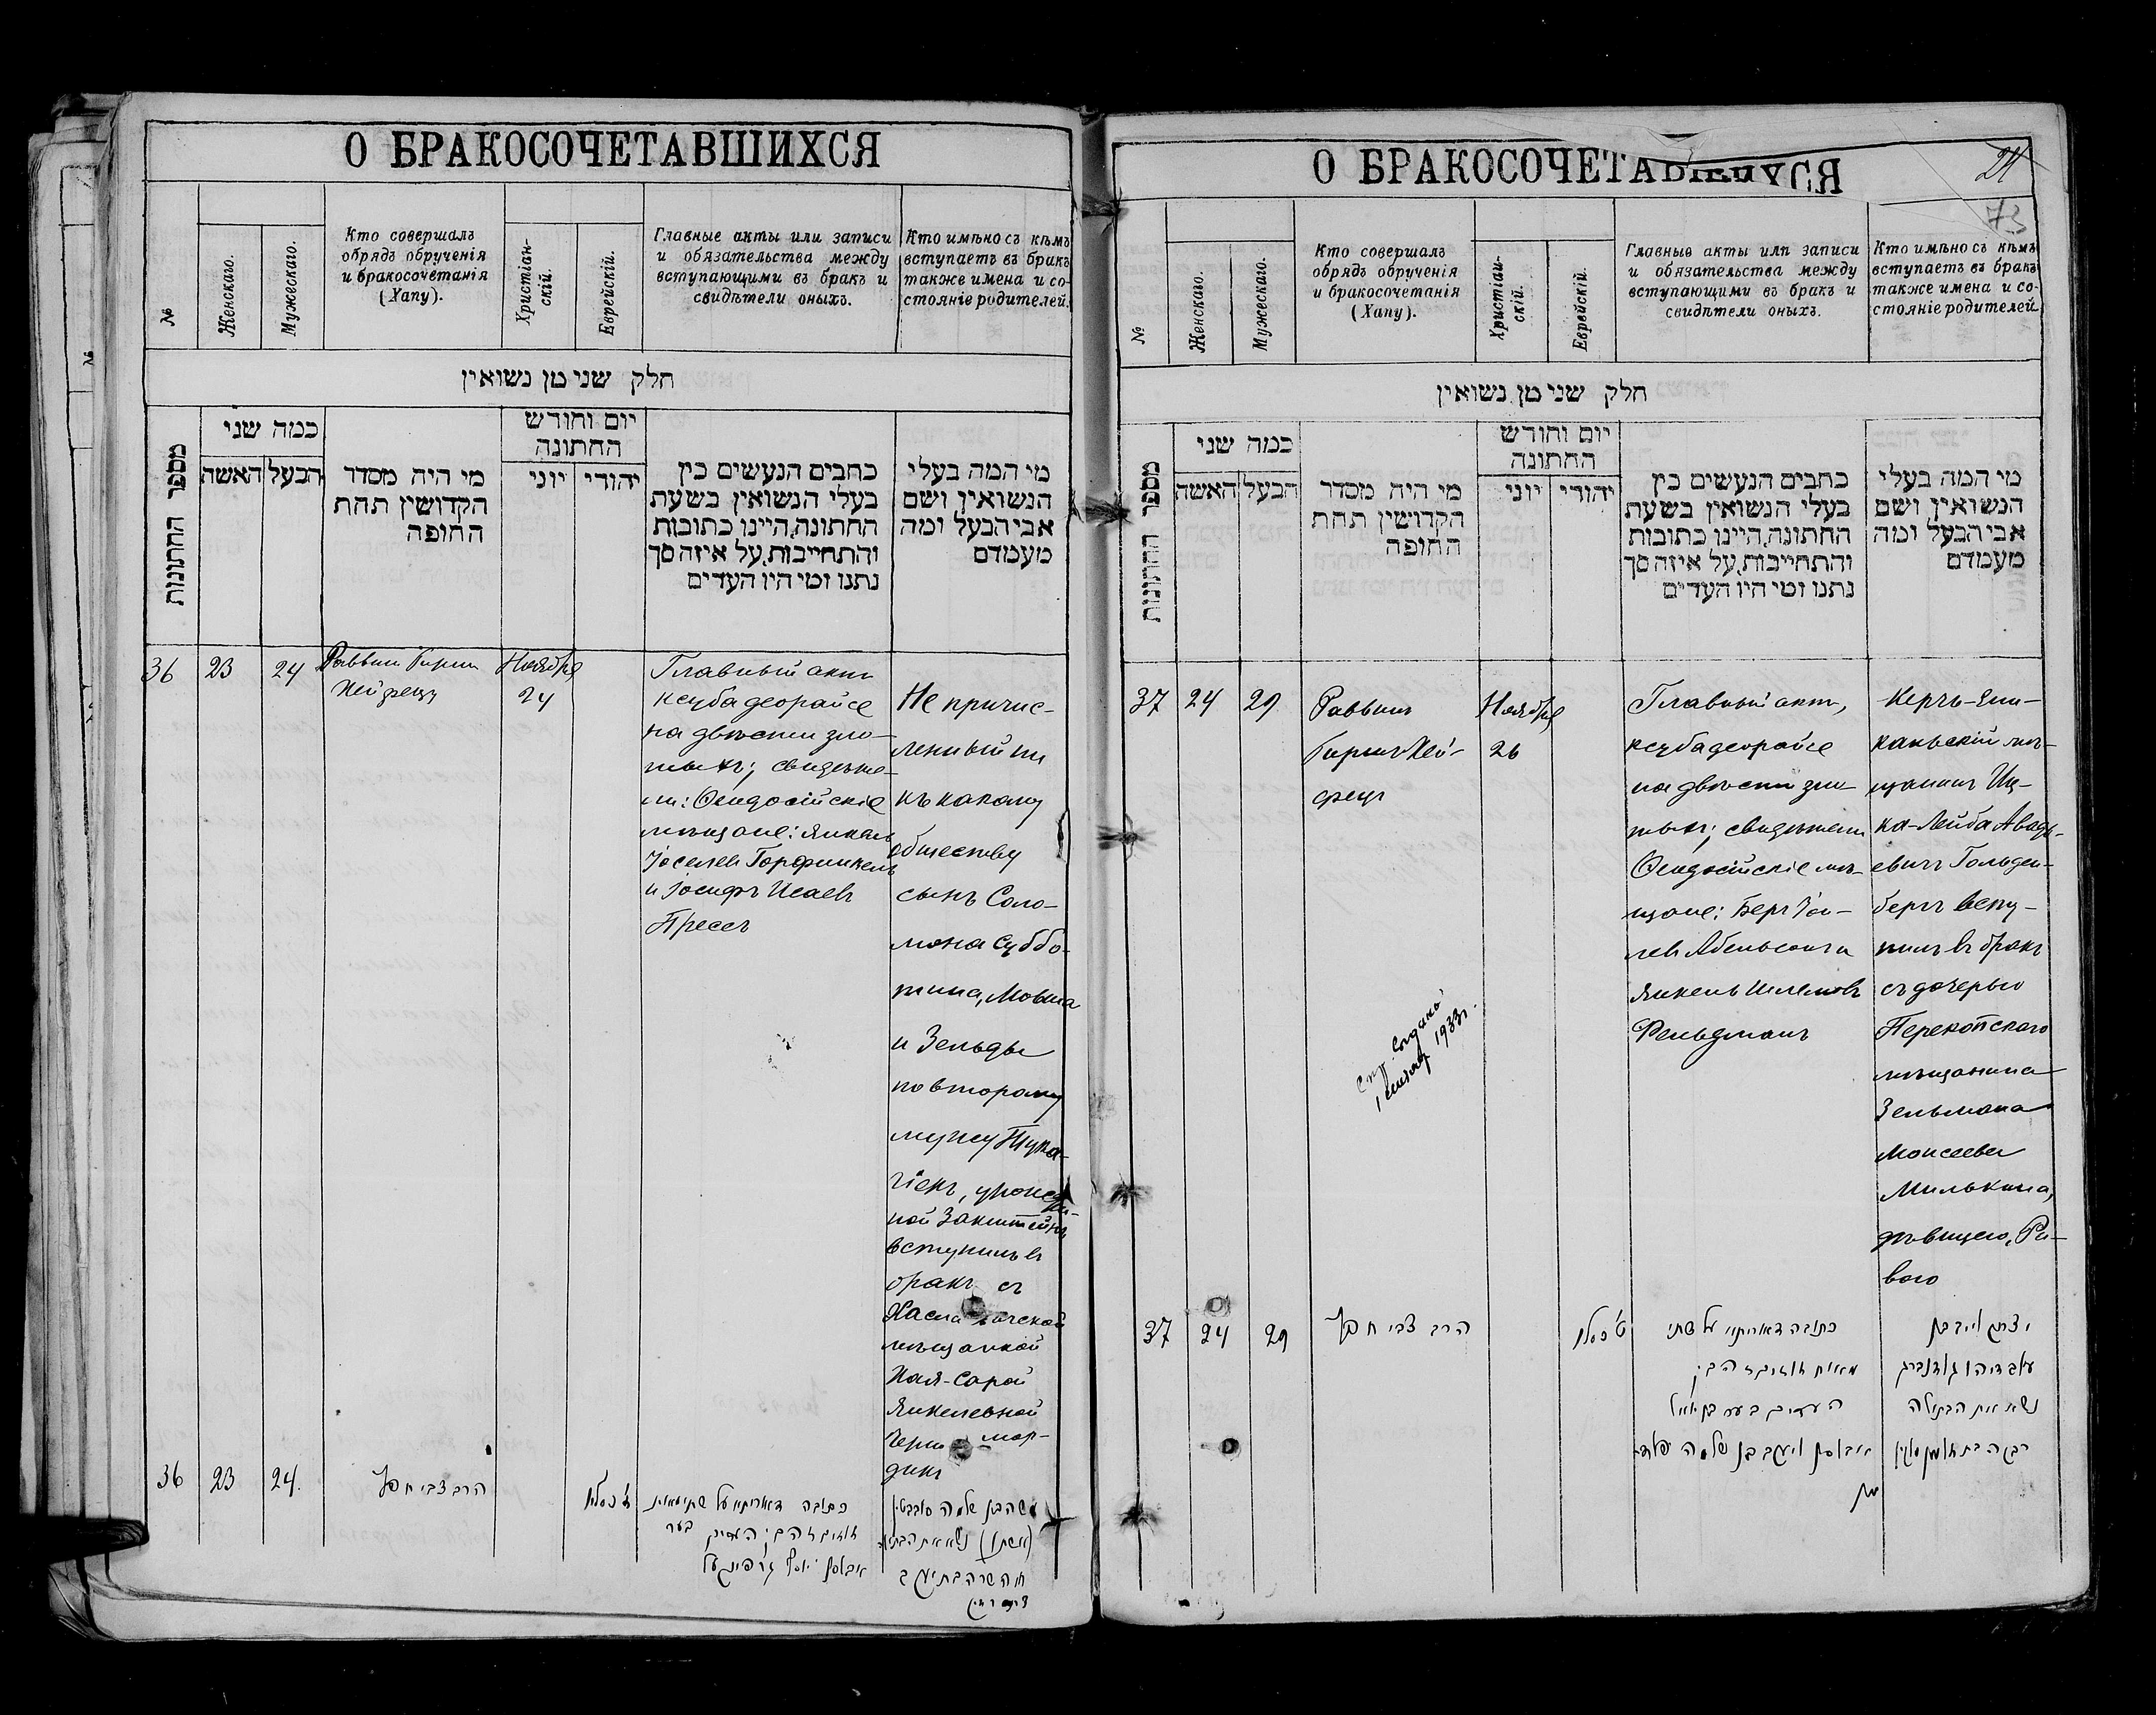 О БРАКОСОЧЕТАВШИХСЯ
№
Женскаго.
Мужескаго.
Кто совершалъ
обрядъ обрученія
и бракосочетанія
(Хапу).
Христіан-
скій.
Еврейскій.
Главные акты или записи
и обязательства между
вступающими въ бракъ и
свидѣтели оныхъ.
Кто имѣно съ кѣмъ
вступаетъ въ бракъ
также имена и со-
стояніе родителей.
חלק שני מן נשואין
מספר החתונות
כמה שני
האשה
הבעל
מי היה מסדר
הקדושין תחת
החופה
יום וחודש
החתונה
יוני
יהודי
כתבים הנעשים בין
בעלי הנשואין בשעת
החתונה, היינו כתובות
והתחייבות, על איזה סך
נתנו ומי היו העדים
מי המה בעלי
הנשואין ושם
אבי הבעל ומה
מעמדם
36
23
24
Раввин Гирш
Хейфецъ
Ноября
24
Главный актъ
ксуба деорайсе
на двѣсти зло-
тыхъ; свидѣте-
ли: Ѳеодосійскіе
мѣщане: Янкель
Іоселевъ Горфинкель
и Іосифъ Исаевъ
Прессъ
Не причис-
ленный ни
къ какому
обществу
сынъ Соло-
мона Суббо-
тина, Мовша
и Зельды
по второму
мужу
урожден-
ной
вступилъ въ
бракъ съ
мѣщанкой
Хая-Сарой
Янкелевной
36
23
24.
הרב צבי חפץ
כסלו
כתובה דאורייתא על שתי מאות
זהובים העדים בער
יוסף גורפינקעל
משה בן שלמה סובבוטין
נשא את
חיה שרה בת יעקב
О БРАКОСОЧЕТАВШИХСЯ
21
73
№
Женскаго.
Мужескаго.
Кто совершалъ
обрядъ обрученія
и бракосочетанія
(Хапу).
Христіан-
скій.
Еврейскій.
Главные акты или записи
и обязательства между
вступающими въ бракъ и
свидѣтели оныхъ.
Кто имѣно съ кѣмъ
вступаетъ въ бракъ
также имена и со-
стояніе родителей
חלק שני מן נשואין
מספר החתונות
כמה שני
האשה
הבעל
מי היה מסדר
הקדושין תחת
החופה
יום וחודש
החתונה
יוני
יהודי
כתבים הנעשים בין
בעלי הנשואין בשעת
החתונה, היינו כתובות
והתחייבות, על איזה סך
נתנו ומי היו העדים
מי המה בעלי
הנשואין ושם
אבי הבעל ומה
מעמדם
37
24
29
Раввинъ
Гиршъ Хей-
фецъ
Ноября
26
Главный актъ,
ксуба деорайсе
на двѣсти зло-
тыхъ; свидѣтели
Ѳеодосійскіе мѣ-
щане: Беръ
Абельсонъ и
Янкель Шлемовъ
Фельдманъ
Керчь-Ени-
кальскій мѣ-
щанинъ Иц-
ка-Лейба Авадь-
евичъ Гольден-
бергъ всту-
пилъ въ бракъ
съ дочерью
Перекопскаго
мѣщанина
Зельмана
Моисеева
Милькина,
дѣвицею, Ри-
вою
1933г.
37
24
29
הרב צבי חפץ
ט׳ כסלו
כתובה דאורייתא על שתי
מאות
העדים בער בן
ויעקב בן שלמה פעלד-
מן
יצחק לייב בן
עובדיהו גולדנברג
נשא את הבתולה
רבקה בת זלמן